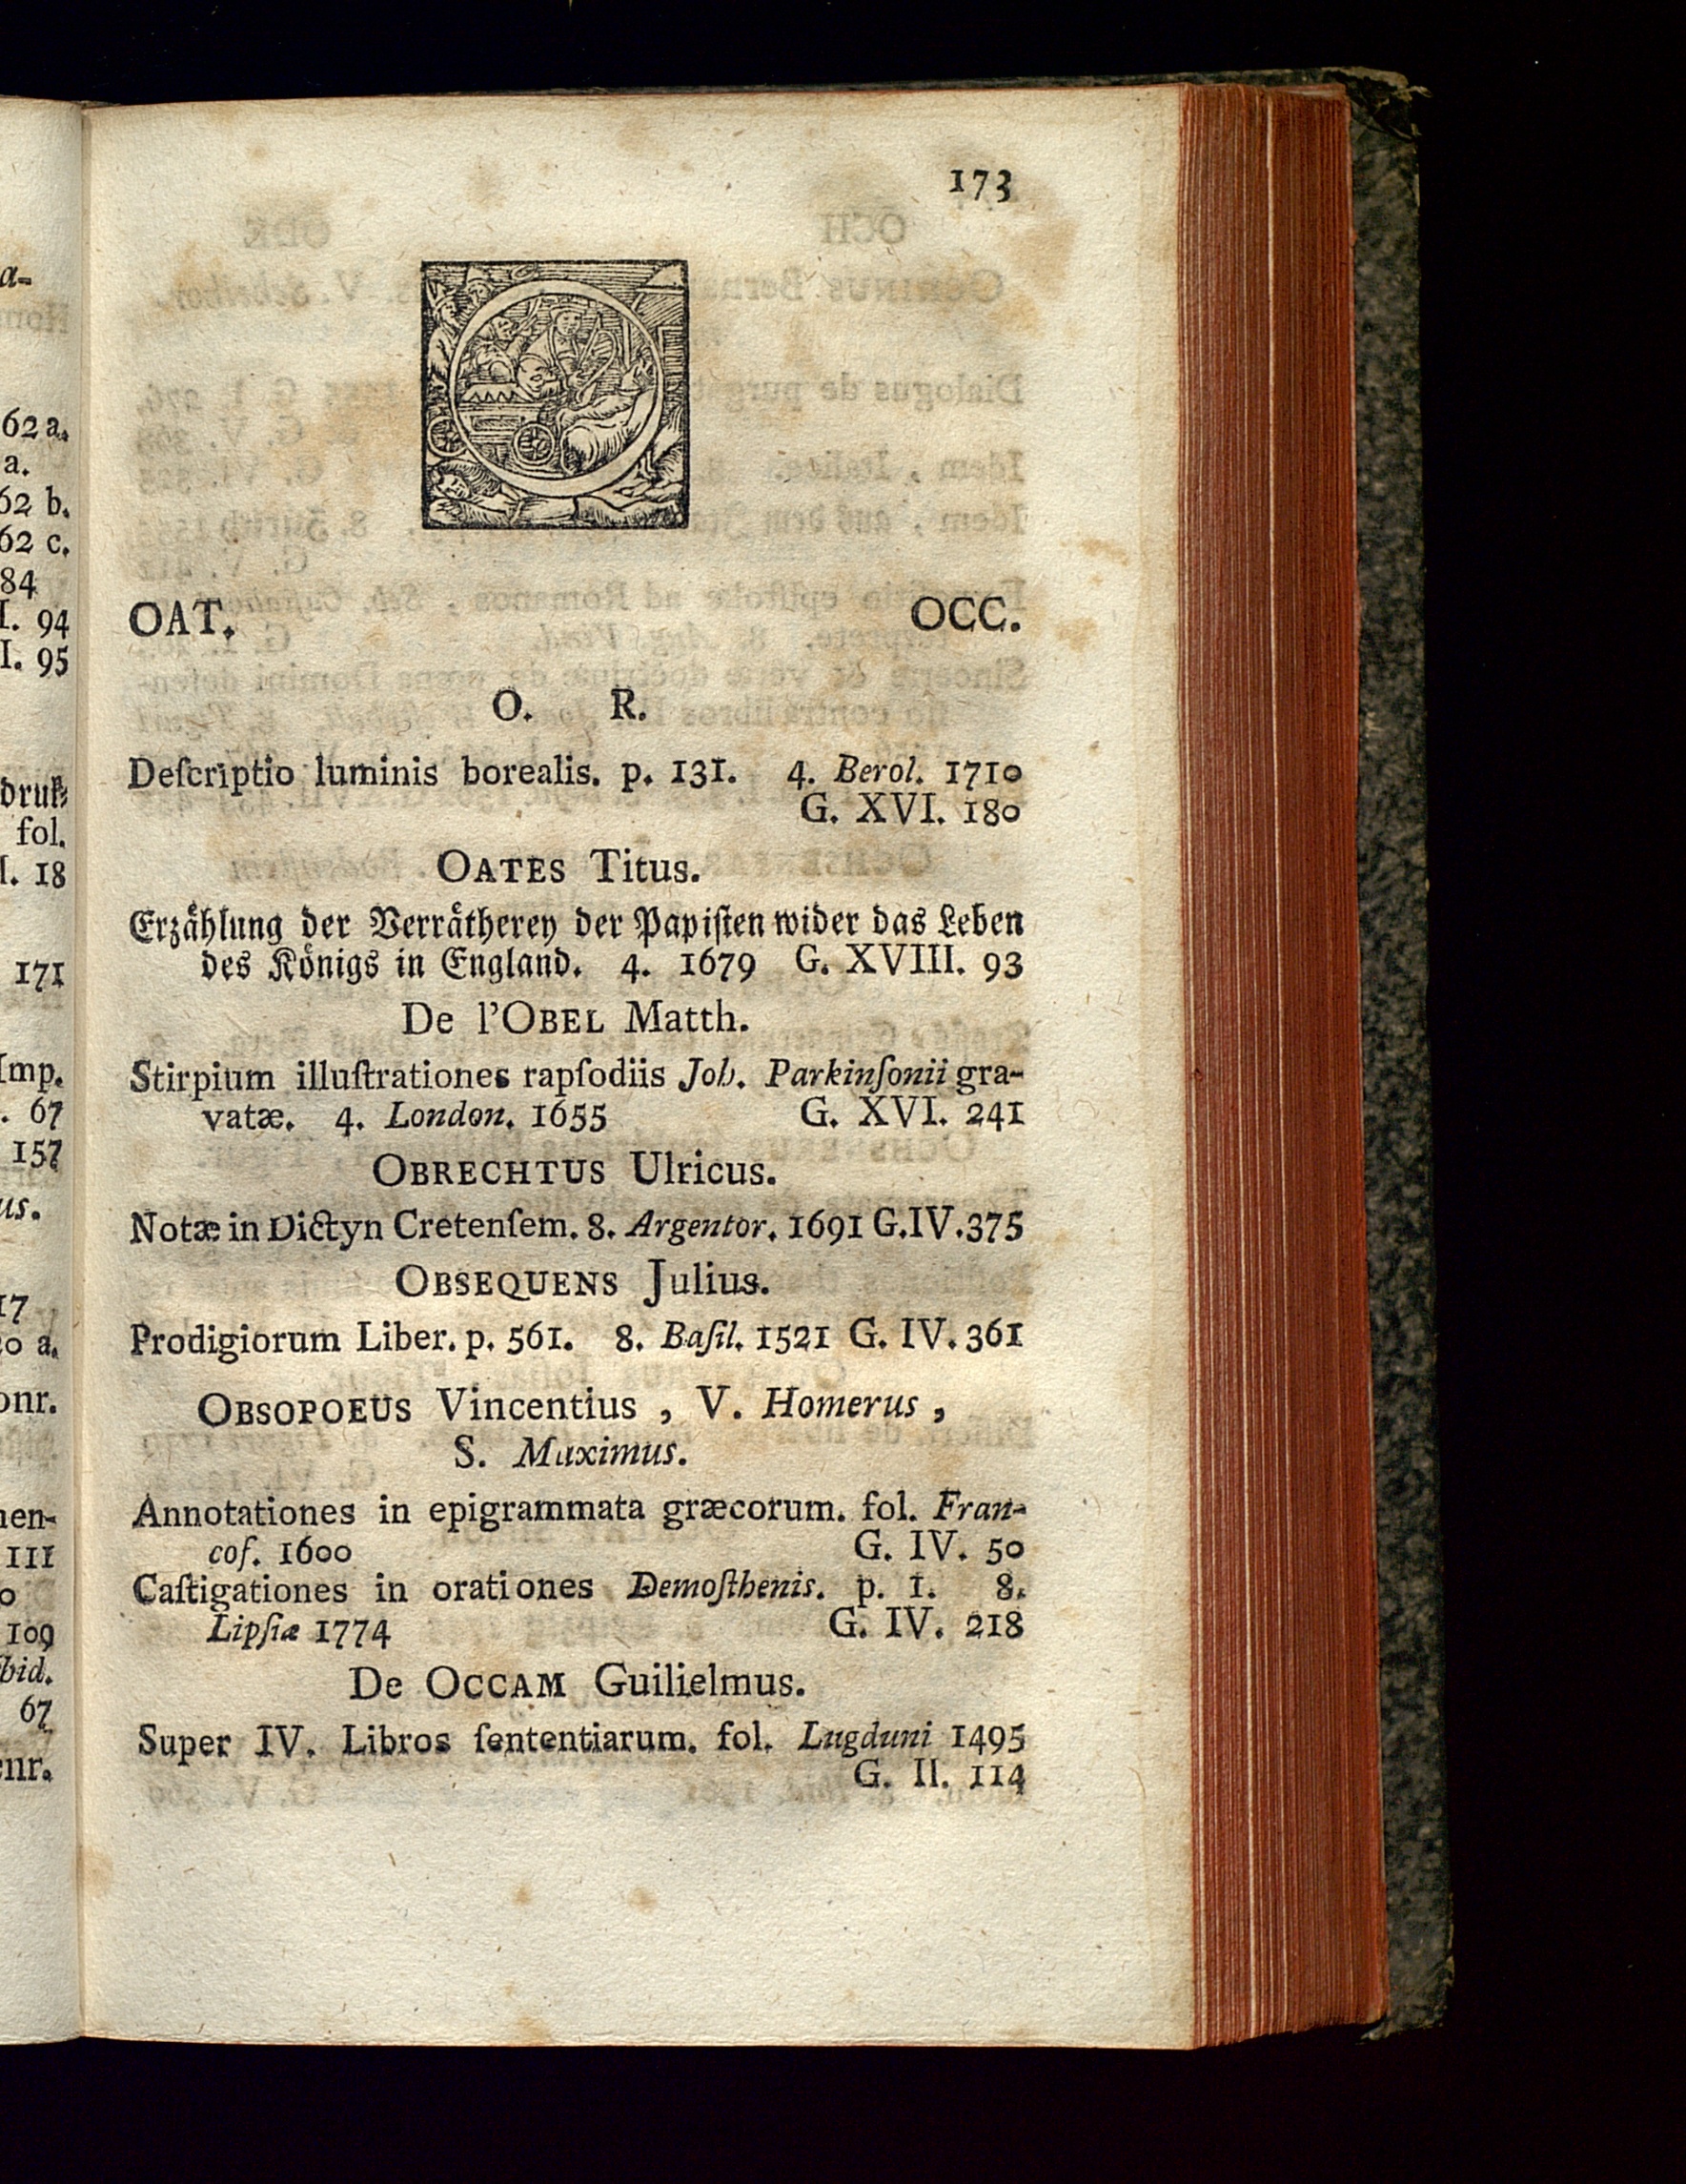 173
OAT. OCC.
O. R.
Deſcriptio luminis borealis. p. 131. 4. Berol. 1710
G. XVI. 180
OATES Titus.
Erzåhlung der Verråtherey der Papiſten wider das Leben
des Königs in England. 4. 1679 G. XVIII. 93
De l'OBEL Matth.
Stirpium illuſtrationes rapſodiis Joh. Parkinſonii gra-
vatæ. 4. London. 1655 G. XVI. 241
OBRECHTUS Ulricus.
Notæ in Dictyn Cretenſem. 8. Argentor. 1691 G.IV.375
OBSEQUENS Julius.
Prodigiorum Liber. p. 561. 8. Baſil. 1521 G. IV. 361
OBSOPOEUS Vincentius, V. Homerus,
S. Maximus.
Annotationes in epigrammata græcorum. fol. Fran-
cof. 1600 G. IV. 50
Caſtigationes in orationes Demoſthenis. p. 1. 8.
Lipſiæ 1774 G. IV. 218
De OCCAM Guilielmus.
Super IV. Libros ſententiarum. fol. Lugduni 1495
G. II. 114
a-
62 a.
a.
62 b.
62 c.
84
I. 94
I. 95
druk-
fol.
I. 18
171
Imp.
. 67
157
us.
17
20 a.
onr.
nen-
111
0
109
bid.
67
enr.